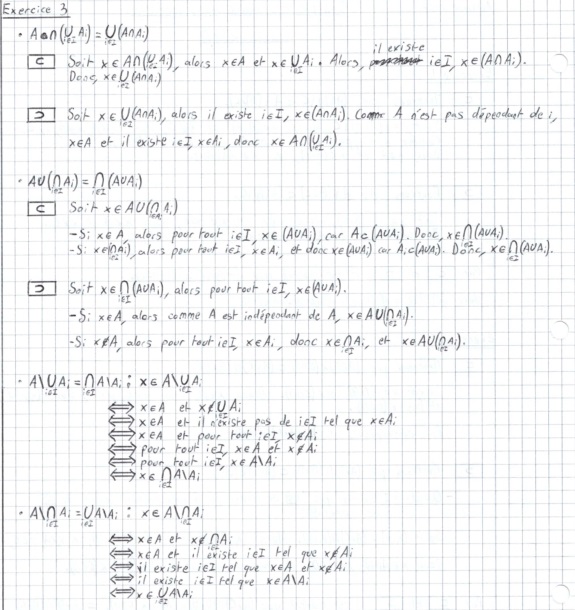 Exercice 3
• A∩(⋃_{i∈I} A_i) = ⋃_{i∈I}(A∩A_i)
⊂ Soit x ∈ A∩(⋃_{i∈I} A_i), alors x∈A et x∈⋃_{i∈I} A_i. Alors, il existe i∈I, x∈(A∩A_i).
Donc, x∈⋃_{i∈I}(A∩A_i)
⊃ Soit x∈⋃_{i∈I}(A∩A_i), alors il existe i∈I, x∈(A∩A_i). Comme A n'est pas dépendant de i,
x∈A et il existe i∈I, x∈A_i, donc x∈A∩(⋃_{i∈I} A_i).
• A∪(⋂_{i∈I} A_i) = ⋂_{i∈I}(A∪A_i)
⊂ Soit x∈A∪(⋂_{i∈I} A_i)
-Si x∈A, alors pour tout i∈I, x∈(A∪A_i), car A⊂(A∪A_i). Donc, x∈⋂_{i∈I}(A∪A_i).
-Si x∈(⋂_{i∈I} A_i), alors pour tout i∈I, x∈A_i, et donc x∈(A∪A_i) car A_i⊂(A∪A_i). Donc, x∈⋂_{i∈I}(A∪A_i).
⊃ Soit x∈⋂_{i∈I}(A∪A_i), alors pour tout i∈I, x∈(A∪A_i).
-Si x∈A, alors comme A est indépendant de A, x∈A∪(⋂_{i∈I} A_i).
-Si x∉A, alors pour tout i∈I, x∈A_i, donc x∈⋂_{i∈I} A_i, et x∈A∪(⋂_{i∈I} A_i).
• A\⋃_{i∈I} A_i = ⋂_{i∈I} A\A_i : x∈A\⋃_{i∈I} A_i
⟺ x∈A et x∉⋃_{i∈I} A_i
⟺ x∈A et il n'existe pas de i∈I tel que x∈A_i
⟺ x∈A et pour tout i∈I, x∉A_i
⟺ pour tout i∈I, x∈A et x∉A_i
⟺ pour tout i∈I, x∈A\A_i
⟺ x∈⋂_{i∈I} A\A_i
• A\⋂_{i∈I} A_i = ⋃_{i∈I} A\A_i : x∈A\⋂_{i∈I} A_i
⟺ x∈A et x∉⋂_{i∈I} A_i
⟺ x∈A et il existe i∈I tel que x∉A_i
⟺ il existe i∈I tel que x∈A et x∉A_i
⟺ il existe i∈I tel que x∈A\A_i
⟺ x∈⋃_{i∈I} A\A_i